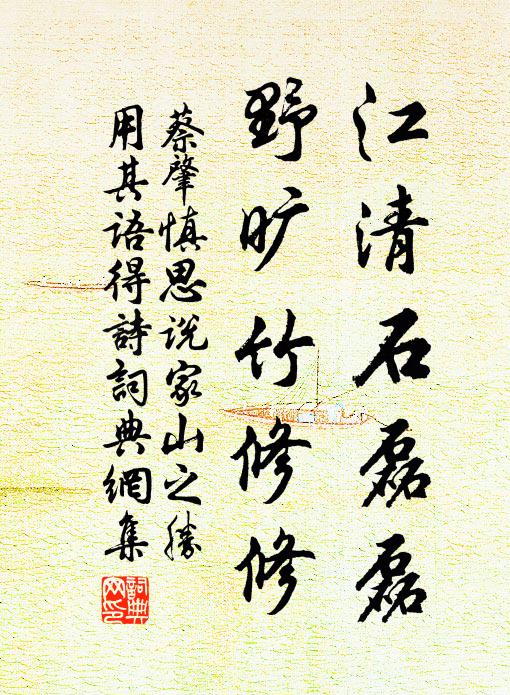 江清石磊磊
野旷竹修修
蔡肇慎思说家山之勝
用其语得詩詞典網集
詞典
网印